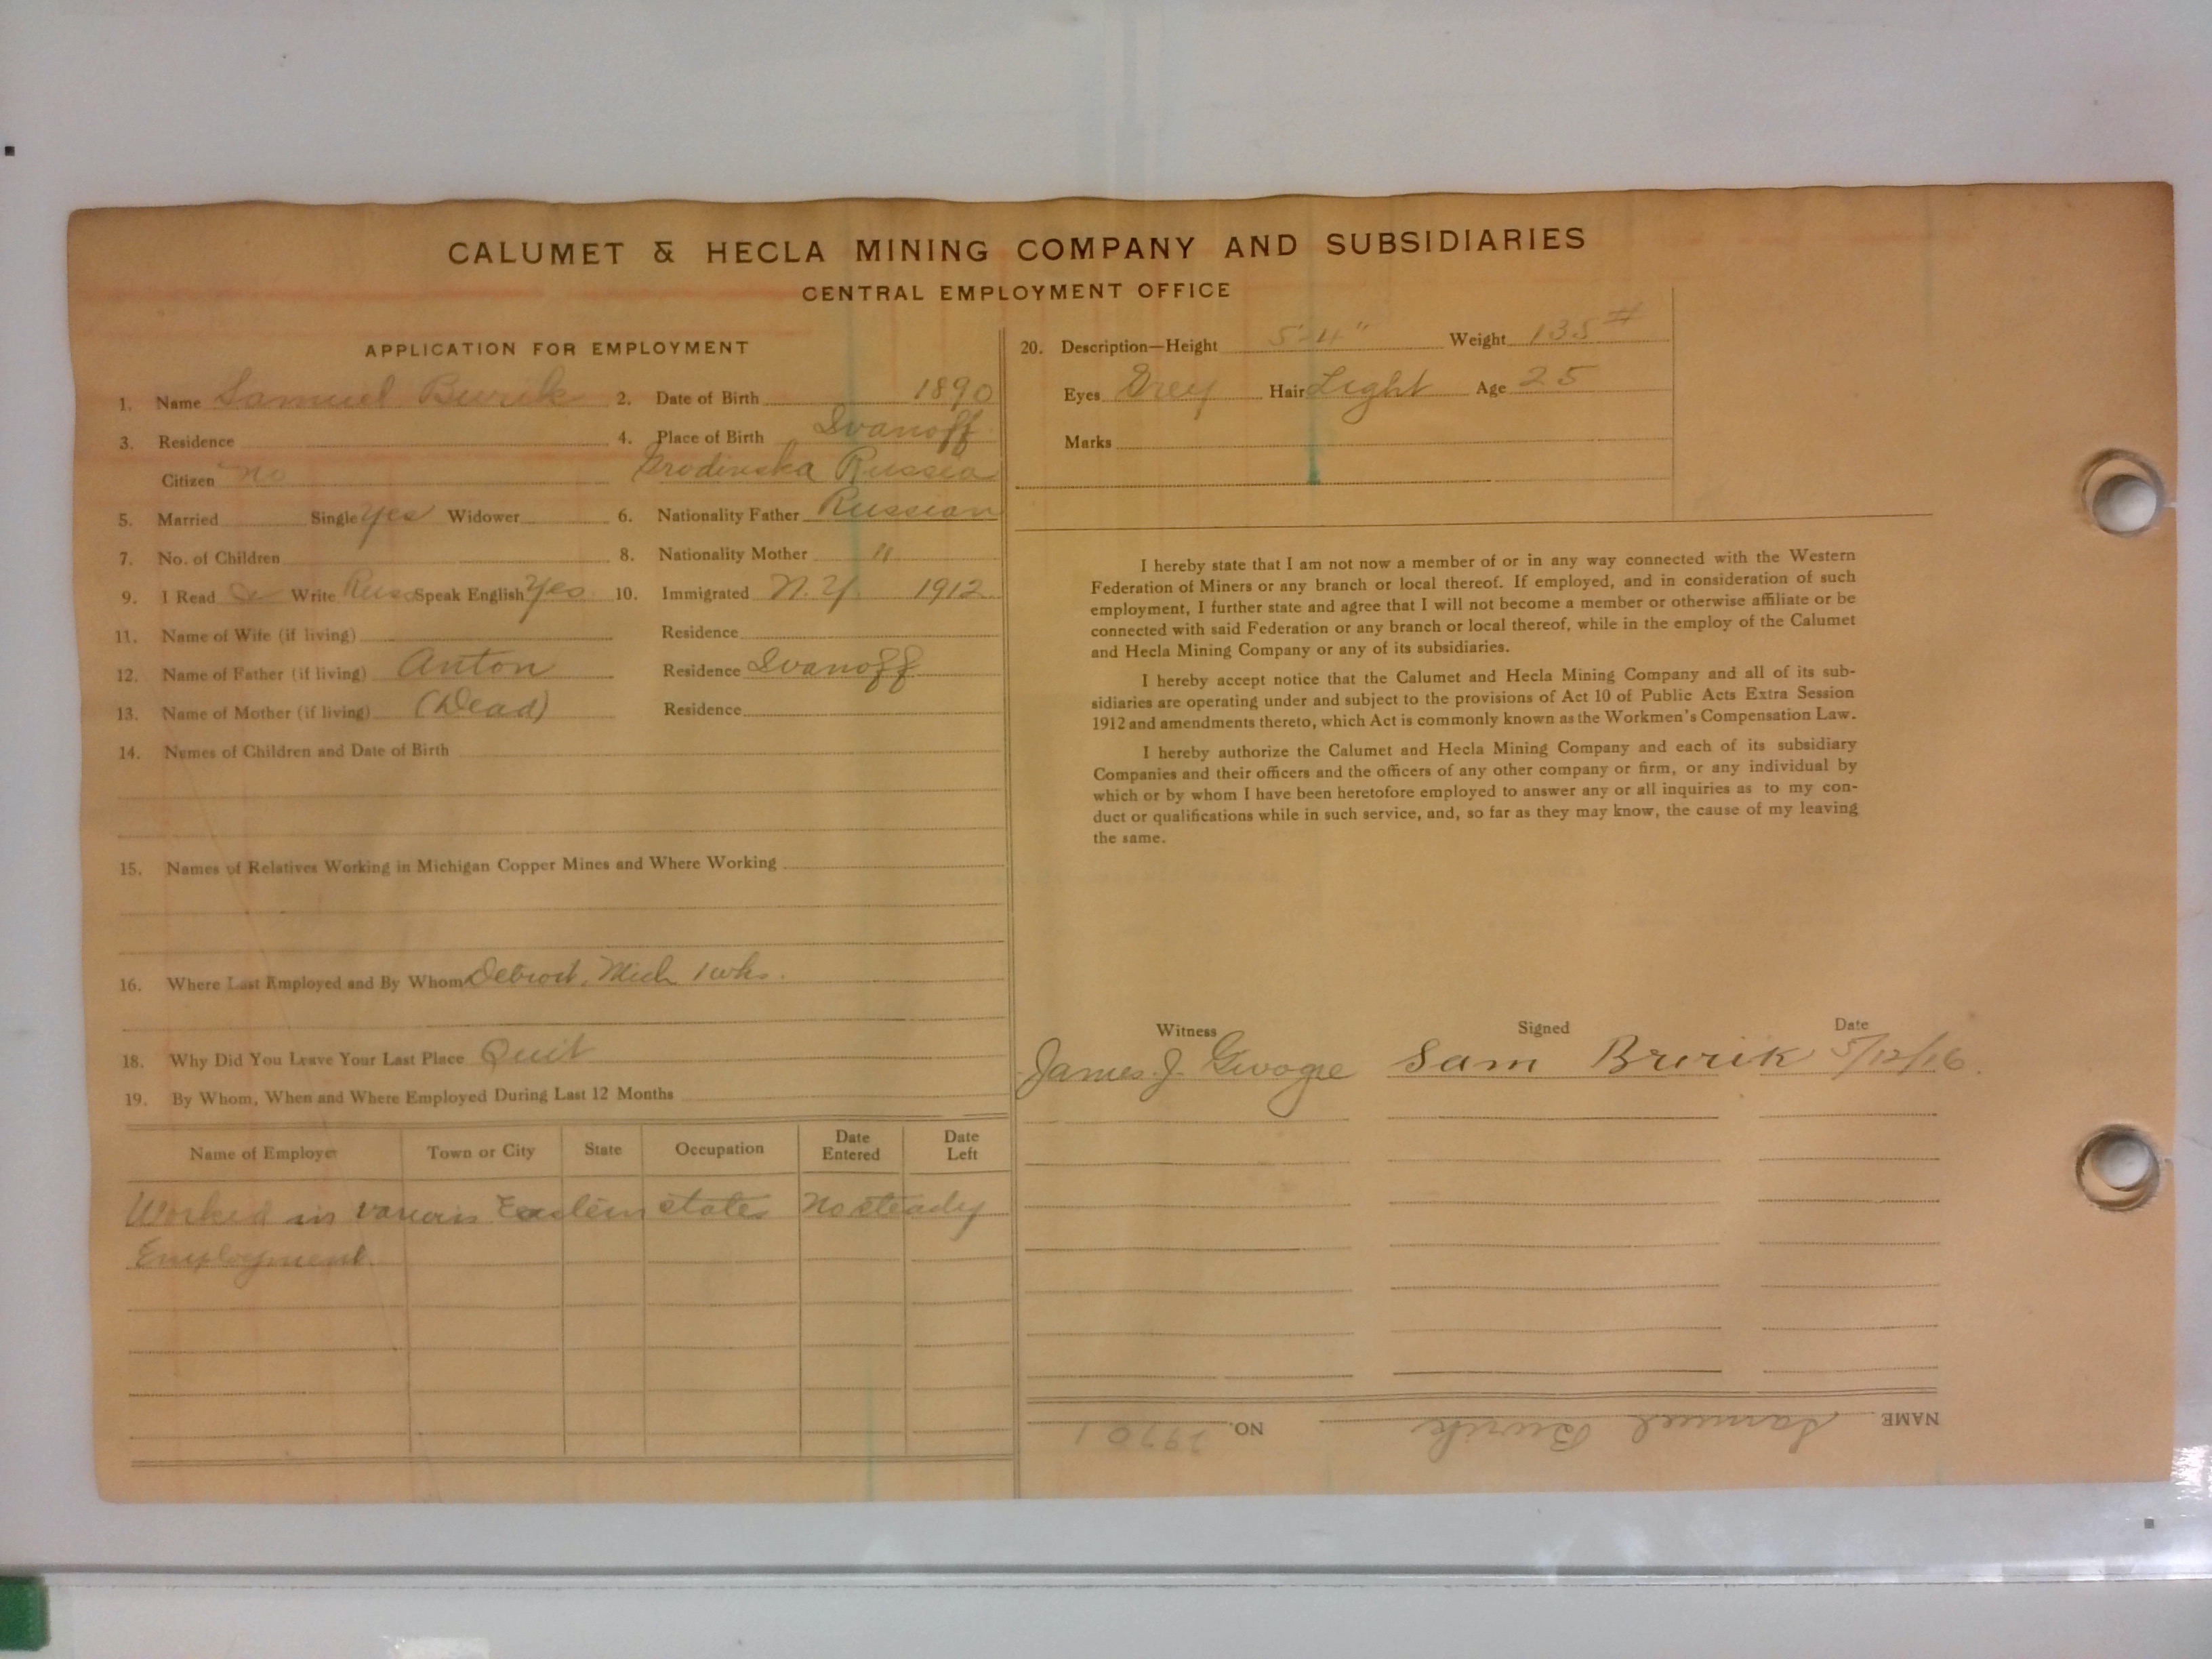 CALUMET & HECLA MINING COMPANY AND SUBSIDIARIES
CENTRAL EMPLOYMENT OFFICE
APPLICATION FOR EMPLOYMENT
1. Name Samuel Burik 2. Date of Birth 1890
3. Residence 4. Place of Birth Ivanoff
Citizen no Grodinska Russia
5. Married Single yes Widower 6. Nationality Father Russian
7. No. of Children 8. Nationality Mother "
9. I Read Write Russ Speak English Yes 10. Immigrated N.Y. 1912
11. Name of Wife (if living) Residence
12. Name of Father (if living) Anton Residence Ivanoff
13. Name of Mother (if living) (Dead) Residence
14. Names of Children and Date of Birth
15. Names of Relatives Working in Michigan Copper Mines and Where Working
16. Where Last Employed and By Whom Detroit, Mich 1 wks.
18. Why Did You Leave Your Last Place Quit
19. By Whom, When and Where Employed During Last 12 Months
Name of Employer Town or City State Occupation Date Entered Date Left
Worked in various Eastern states No steady
Employment.
20. Description—Height 5'4" Weight 135#
Eyes Grey Hair Light Age 25
Marks
I hereby state that I am not now a member of or in any way connected with the Western
Federation of Miners or any branch or local thereof. If employed, and in consideration of such
employment, I further state and agree that I will not become a member or otherwise affiliate or be
connected with said Federation or any branch or local thereof, while in the employ of the Calumet
and Hecla Mining Company or any of its subsidiaries.
I hereby accept notice that the Calumet and Hecla Mining Company and all of its sub-
sidiaries are operating under and subject to the provisions of Act 10 of Public Acts Extra Session
1912 and amendments thereto, which Act is commonly known as the Workmen's Compensation Law.
I hereby authorize the Calumet and Hecla Mining Company and each of its subsidiary
Companies and their officers and the officers of any other company or firm, or any individual by
which or by whom I have been heretofore employed to answer any or all inquiries as to my con-
duct or qualifications while in such service, and, so far as they may know, the cause of my leaving
the same.
Witness Signed Date
James J. Sam Burik 5/12/16.
NAME Samuel Burik NO. 29701